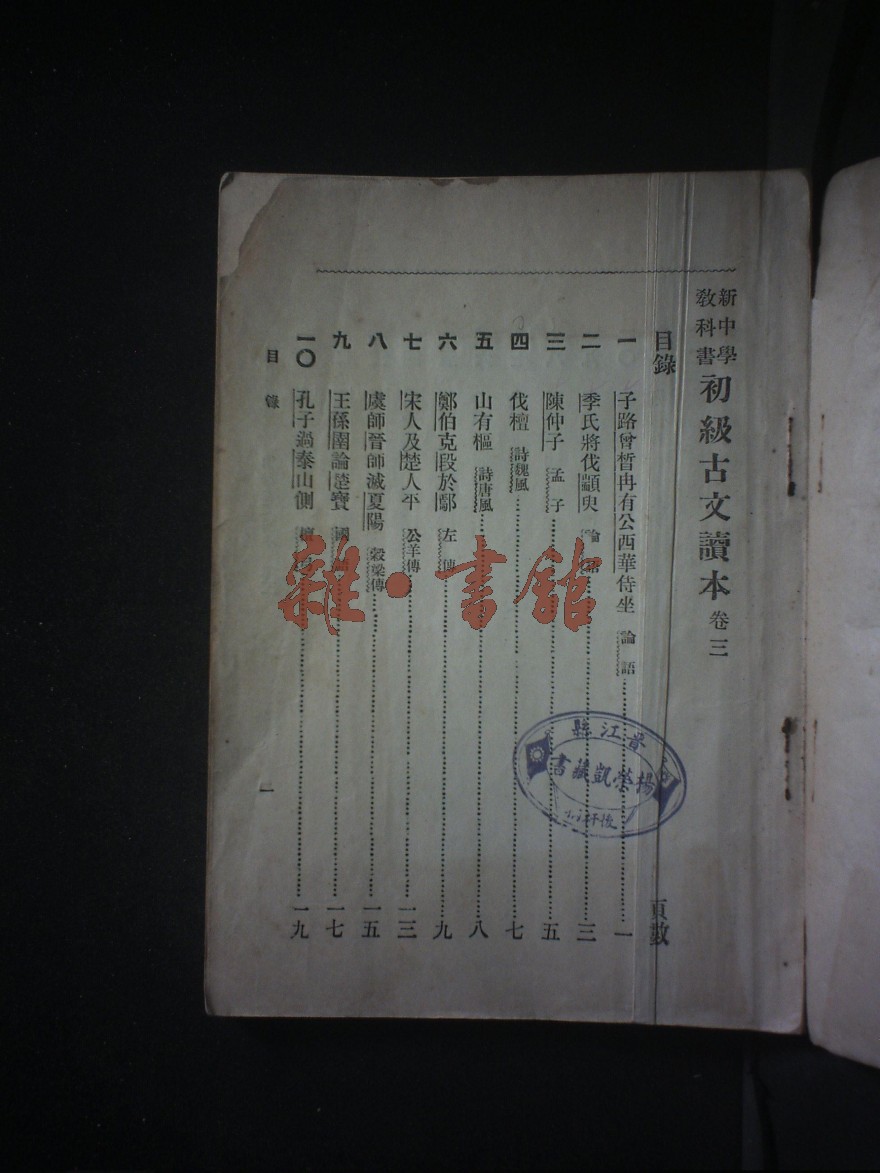 新中學
教科書
初級古文讀本 卷三
目錄 頁數
一 子路曾晳冉有公西華侍坐 論語 一
二 季氏將伐顓臾 論語 三
三 陳仲子 孟子 五
四 伐檀 詩魏風 七
五 山有樞 詩唐風 八
六 鄭伯克段於鄢 左傳 九
七 宋人及楚人平 公羊傳 一三
八 虞師晉師滅夏陽 穀梁傳 一五
九 王孫圉論楚寶 國 一七
一〇 孔子過泰山側 檀 一九
目錄
一
雜·書館
晉江縣
楊榮凱藏書